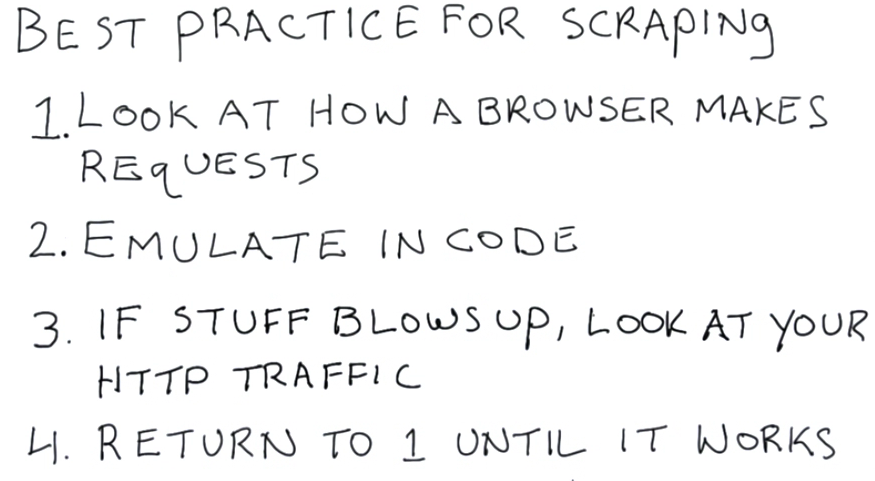 BEST PRACTICE FOR SCRAPING
1. LOOK AT HOW A BROWSER MAKES
REqUESTS
2. EMULATE IN CODE
3. IF STUFF BLOWS UP, LOOK AT YOUR
HTTP TRAFFIC
4. RETURN TO 1 UNTIL IT WORKS